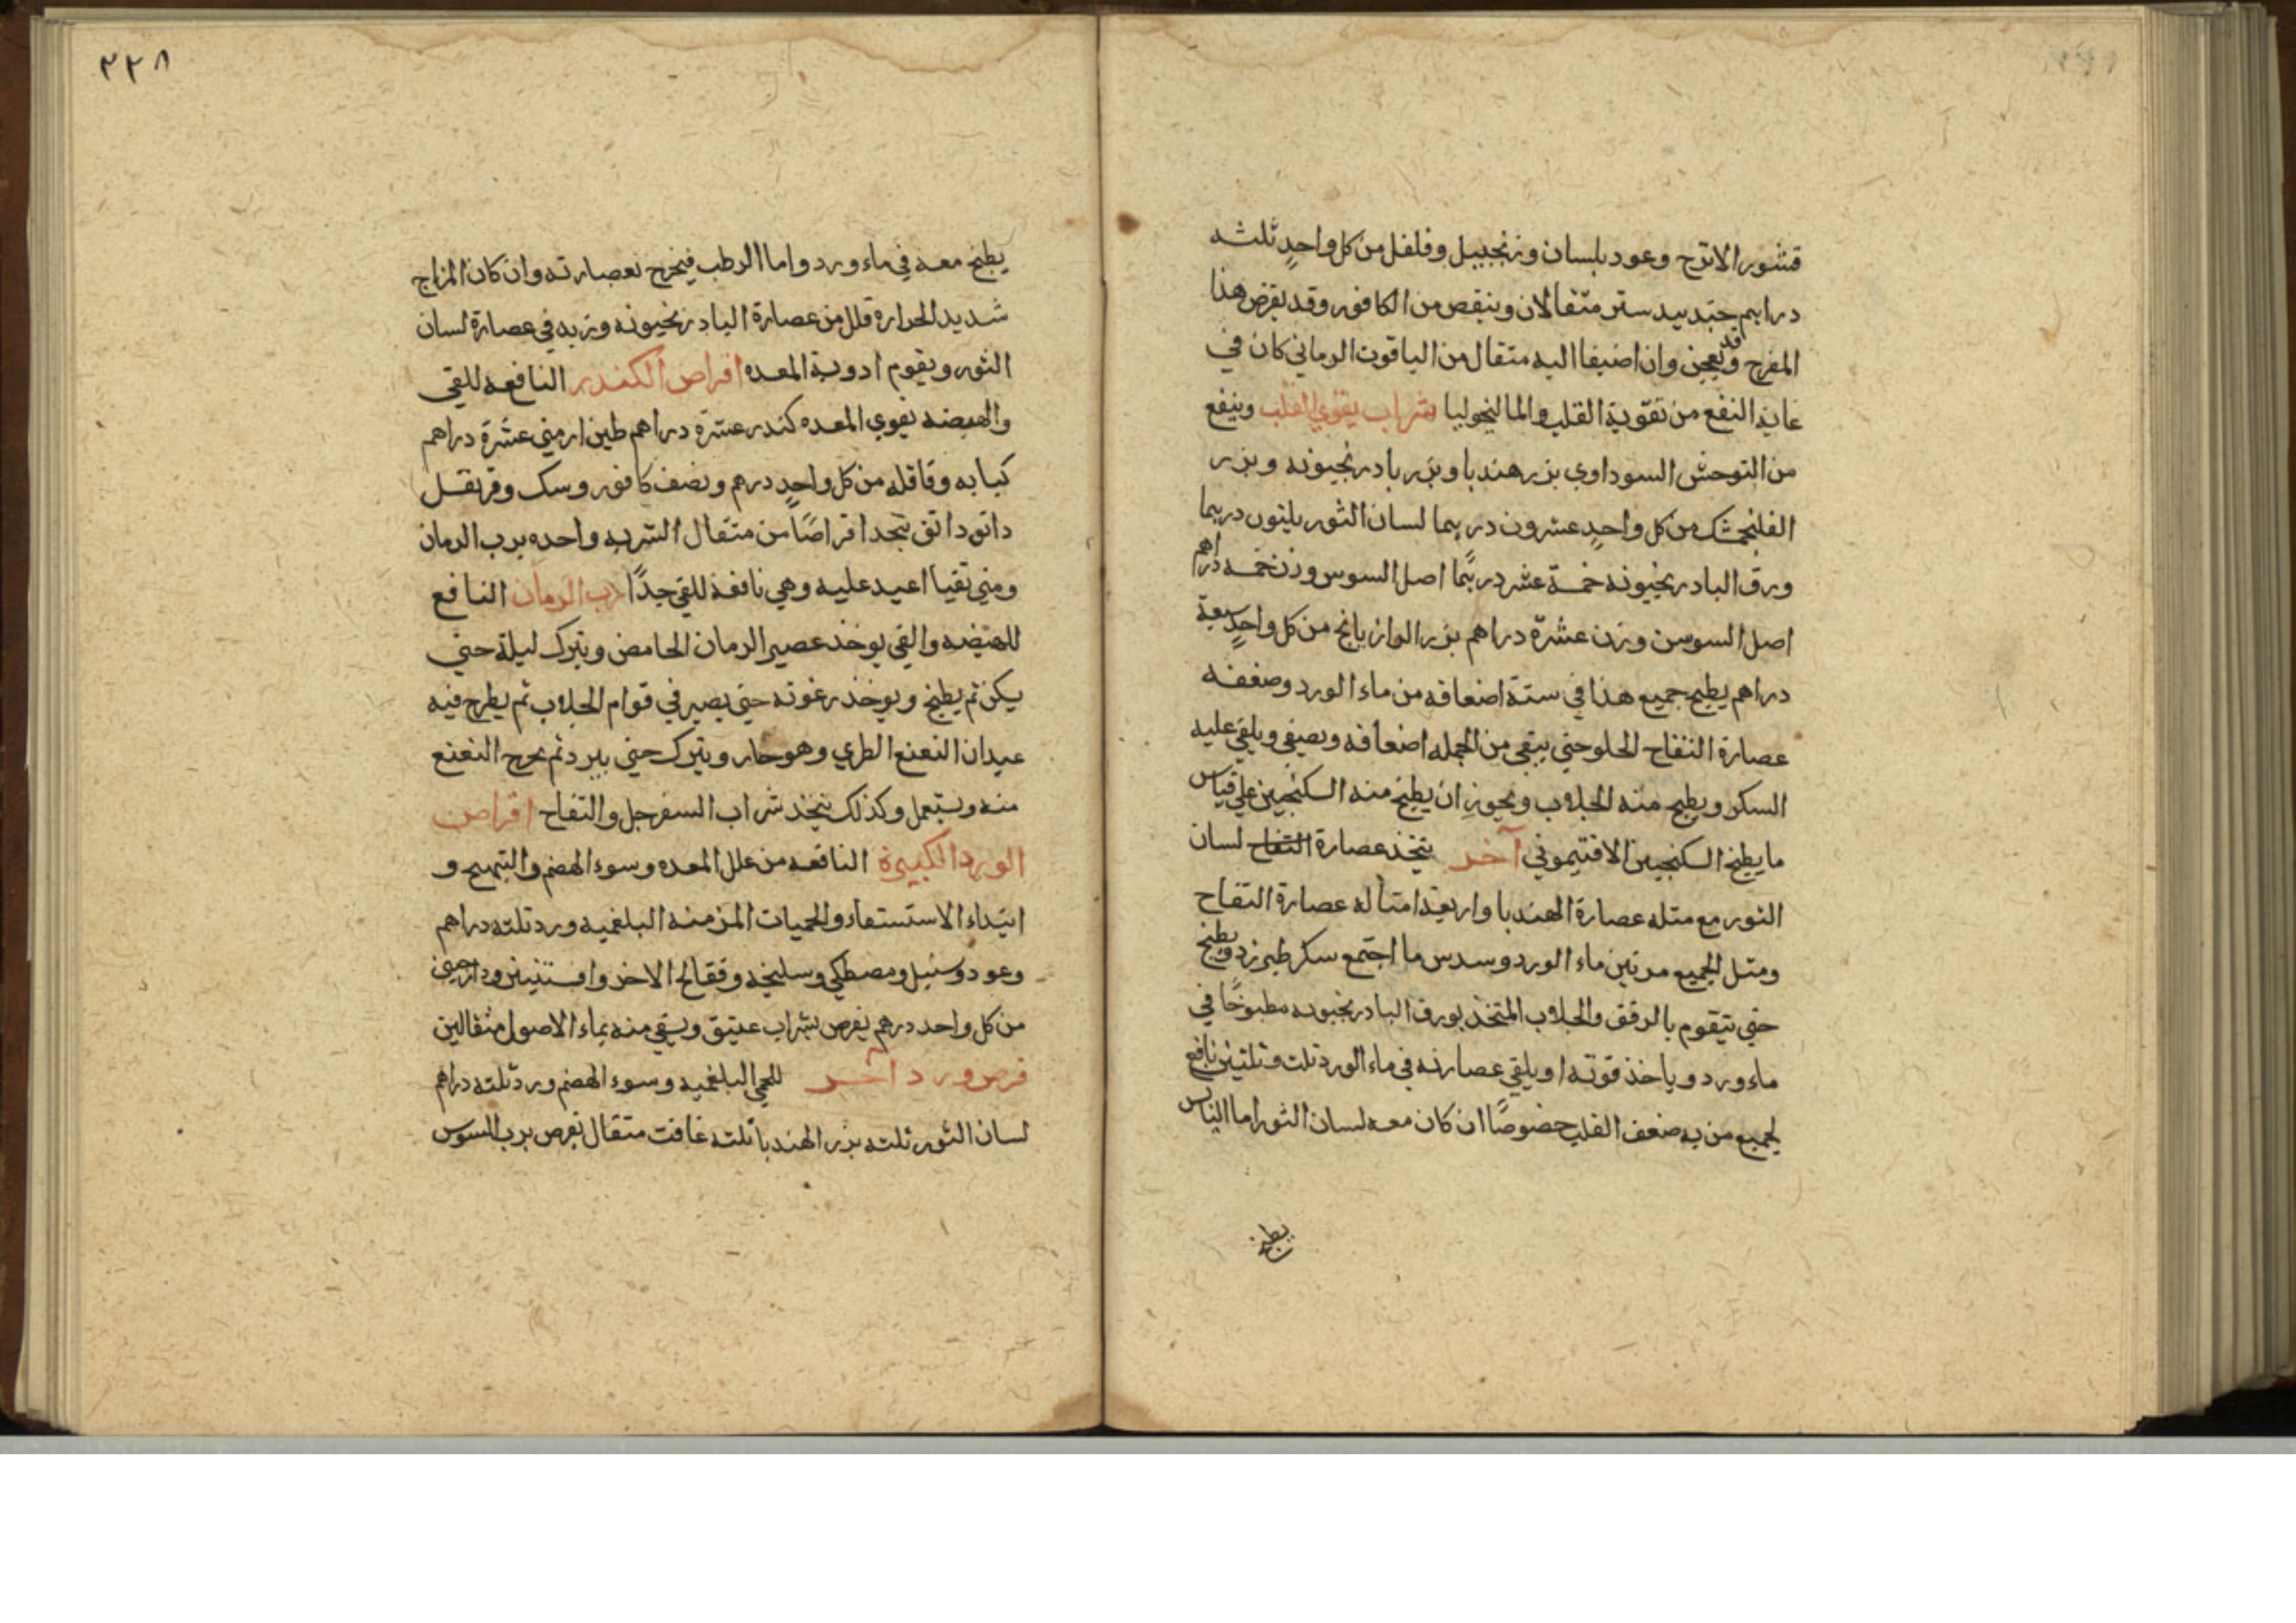 قشور الاترج وعود بلسان وزنجبيل وفلفل من كل واحدٍ ثلثه
دراهم جندبيدستر مثقالان وينقص من الكافور وقد يقرض هذا
المفرح وقد يعجن وان اضيفا اليه مثقال من الياقوت الرماني كان في
غاية النفع من تقوية القلب والمالنخوليا شراب يقوي القلب وينفع
من التوحش السوداوي بزر هندبا وبزر بادرنجبونه وبزر
الفلنجمشك من كل واحدٍ عشرون درهما لسان الثور ثلثون درهما
ورق البادرنجبونه خمسة عشر درهمًا اصل السوس وزن خمسه دراهم
اصل السوسن وزن عشرة دراهم بزر الرازيانج من كل واحدٍ سبعة
دراهم يطبخ جميع هذا في ستة اضعافه من ماء الورد وضعفه
عصارة التفاح الحلو حتي يبقي من الجمله اضعافه ويصفي ويلقي عليه
السكر ويطبخ منه الجلاب ويجوز ان يطبخ منه السكنجبين علي قياس
ما يطبخ السكنجبين الافتيموني آخر يتخذ عصارة التفاح لسان
الثور مع مثله عصارة الهندبا واربعة امثاله عصارة التفاح
ومثل الجميع مرتين ماء الورد وسدس ما اجتمع سكر طبرزد ويطبخ
حتي يتقوم بالرفق والجلاب المتخذ بورق البادرنجبونه مطبوخًا في
ماء ورد وياخذ قوته او يلقي عصارته في ماء الورد ثلث وثلثين نافع
لجميع من به ضعف القلب خصوصًا ان كان معه لسان الثور اما اليابس
يطبخ
٢٢٨
يطبخ معه في ماء ورد واما الرطب فيخرج بعصارته وان كان المزاج
شديد الحراره قلل من عصارة البادرنجبونه وزيد في عصارة لسان
الثور ويقوم ادوية المعده اقراص الكندر النافعه للقي
والهيضه يقوي المعده كندر عشرة دراهم طين ارمني عشرة دراهم
كبابه وقاقله من كل واحدٍ درهم ونصف كافور وسك وقرنفل
دانق دانق يتخذ اقراصًا من مثقال الشربه واحده برب الرمان
ومتي تقيا اعيد عليه وهي نافعة للقي جدًا رب الرمان النافع
للهيضه والقي يوخذ عصير الرمان الحامض ويترك ليلة حتي
يسكن ثم يطبخ ويوخذ رغوته حتي يصير في قوام الجلاب ثم يطرح فيه
عيدان النعنع الطري وهو حار ويترك حتي يبرد ثم يخرج النعنع
منه ويستعمل وكذلك يتخذ شراب السفرجل والتفاح اقراص
الورد الكبيرة النافعه من علل المعده وسوء الهضم والتهيج و
ابتداء الاستسقاء والحميات المزمنه البلغميه ورد ثلثه دراهم
وعود وسنبل ومصطكي وسليخه وفقاح الاذخر وافسنتين ودارصيني
من كل واحد درهم يقرص بشراب عتيق ويسقي منه بماء الاصول مثقالين
قرص ورد آخر للحمي البلغميه وسوء الهضم ورد ثلثه دراهم
لسان الثور ثلثه بزر الهندبا ثلثه غافت مثقال يقرص برب السوس